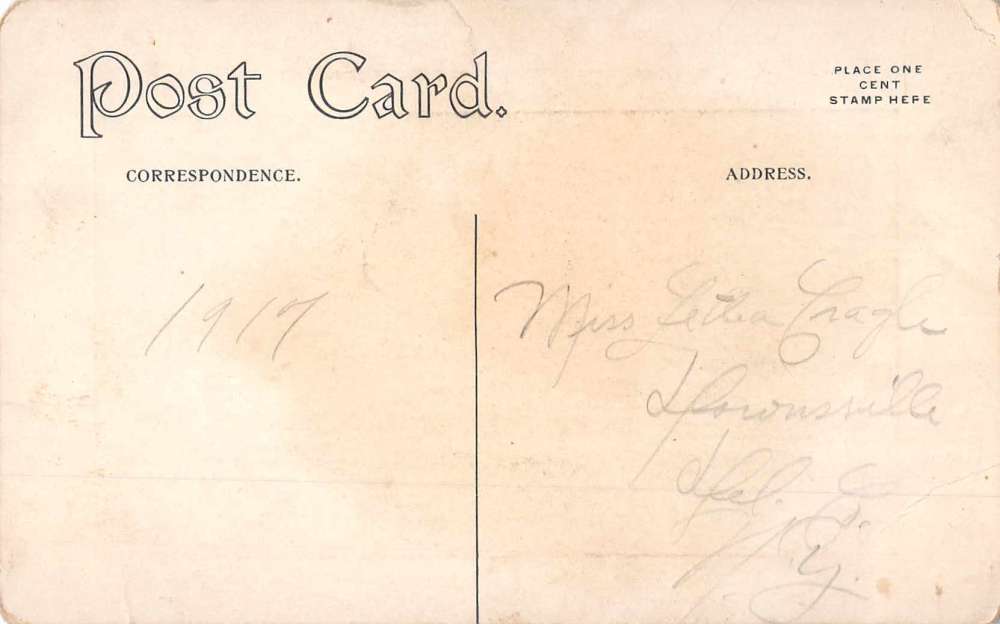 Post Card.
PLACE ONE
CENT
STAMP HERE
CORRESPONDENCE.
ADDRESS.
1917
Miss Letha Cragle
Downsville
Del. Co.
N.Y.